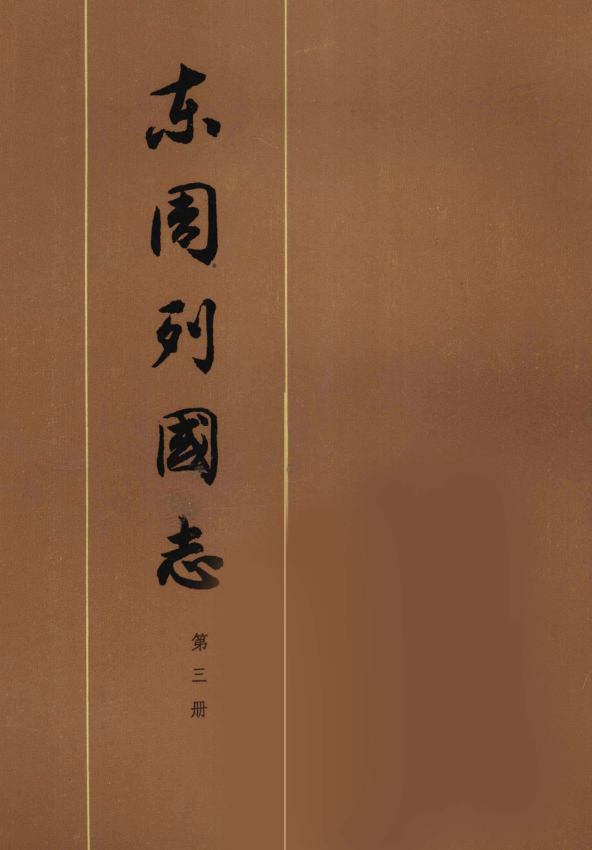 东周列國志
第三册